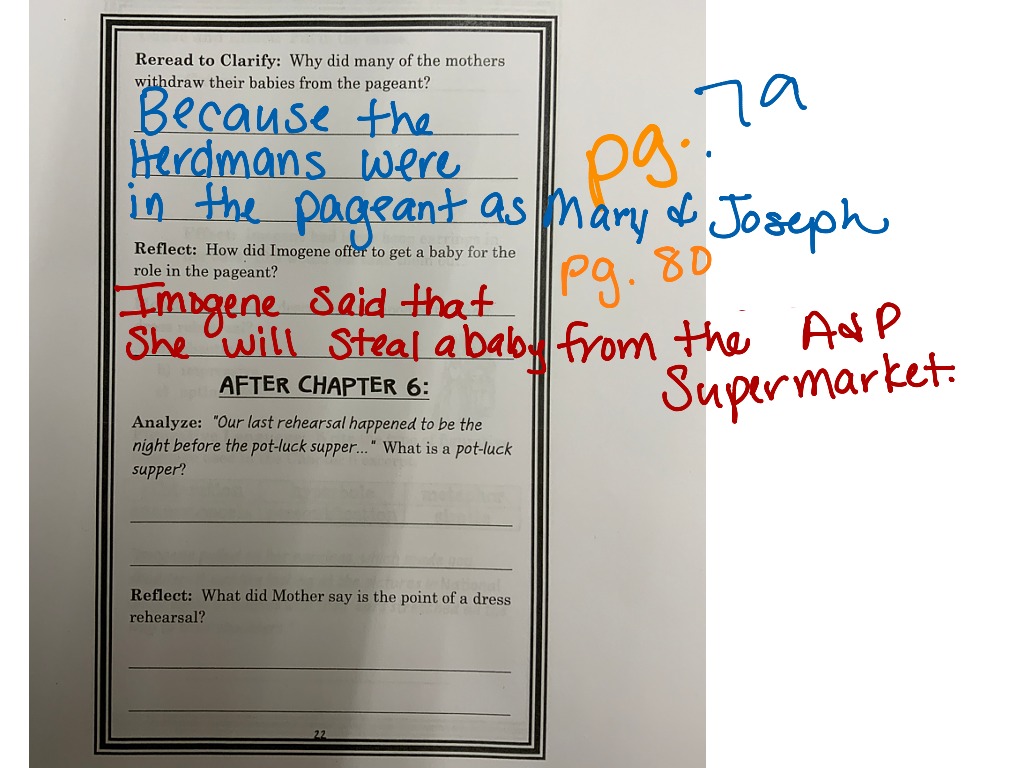 Reread to Clarify: Why did many of the mothers
withdraw their babies from the pageant?
Because the
Herdmans were
in the pageant as Mary & Joseph
pg. 79
Reflect: How did Imogene offer to get a baby for the
role in the pageant?
pg. 80
Imogene said that
She will steal a baby from the A&P
Supermarket.
AFTER CHAPTER 6:
Analyze: "Our last rehearsal happened to be the
night before the pot-luck supper..." What is a pot-luck
supper?
Reflect: What did Mother say is the point of a dress
rehearsal?
22